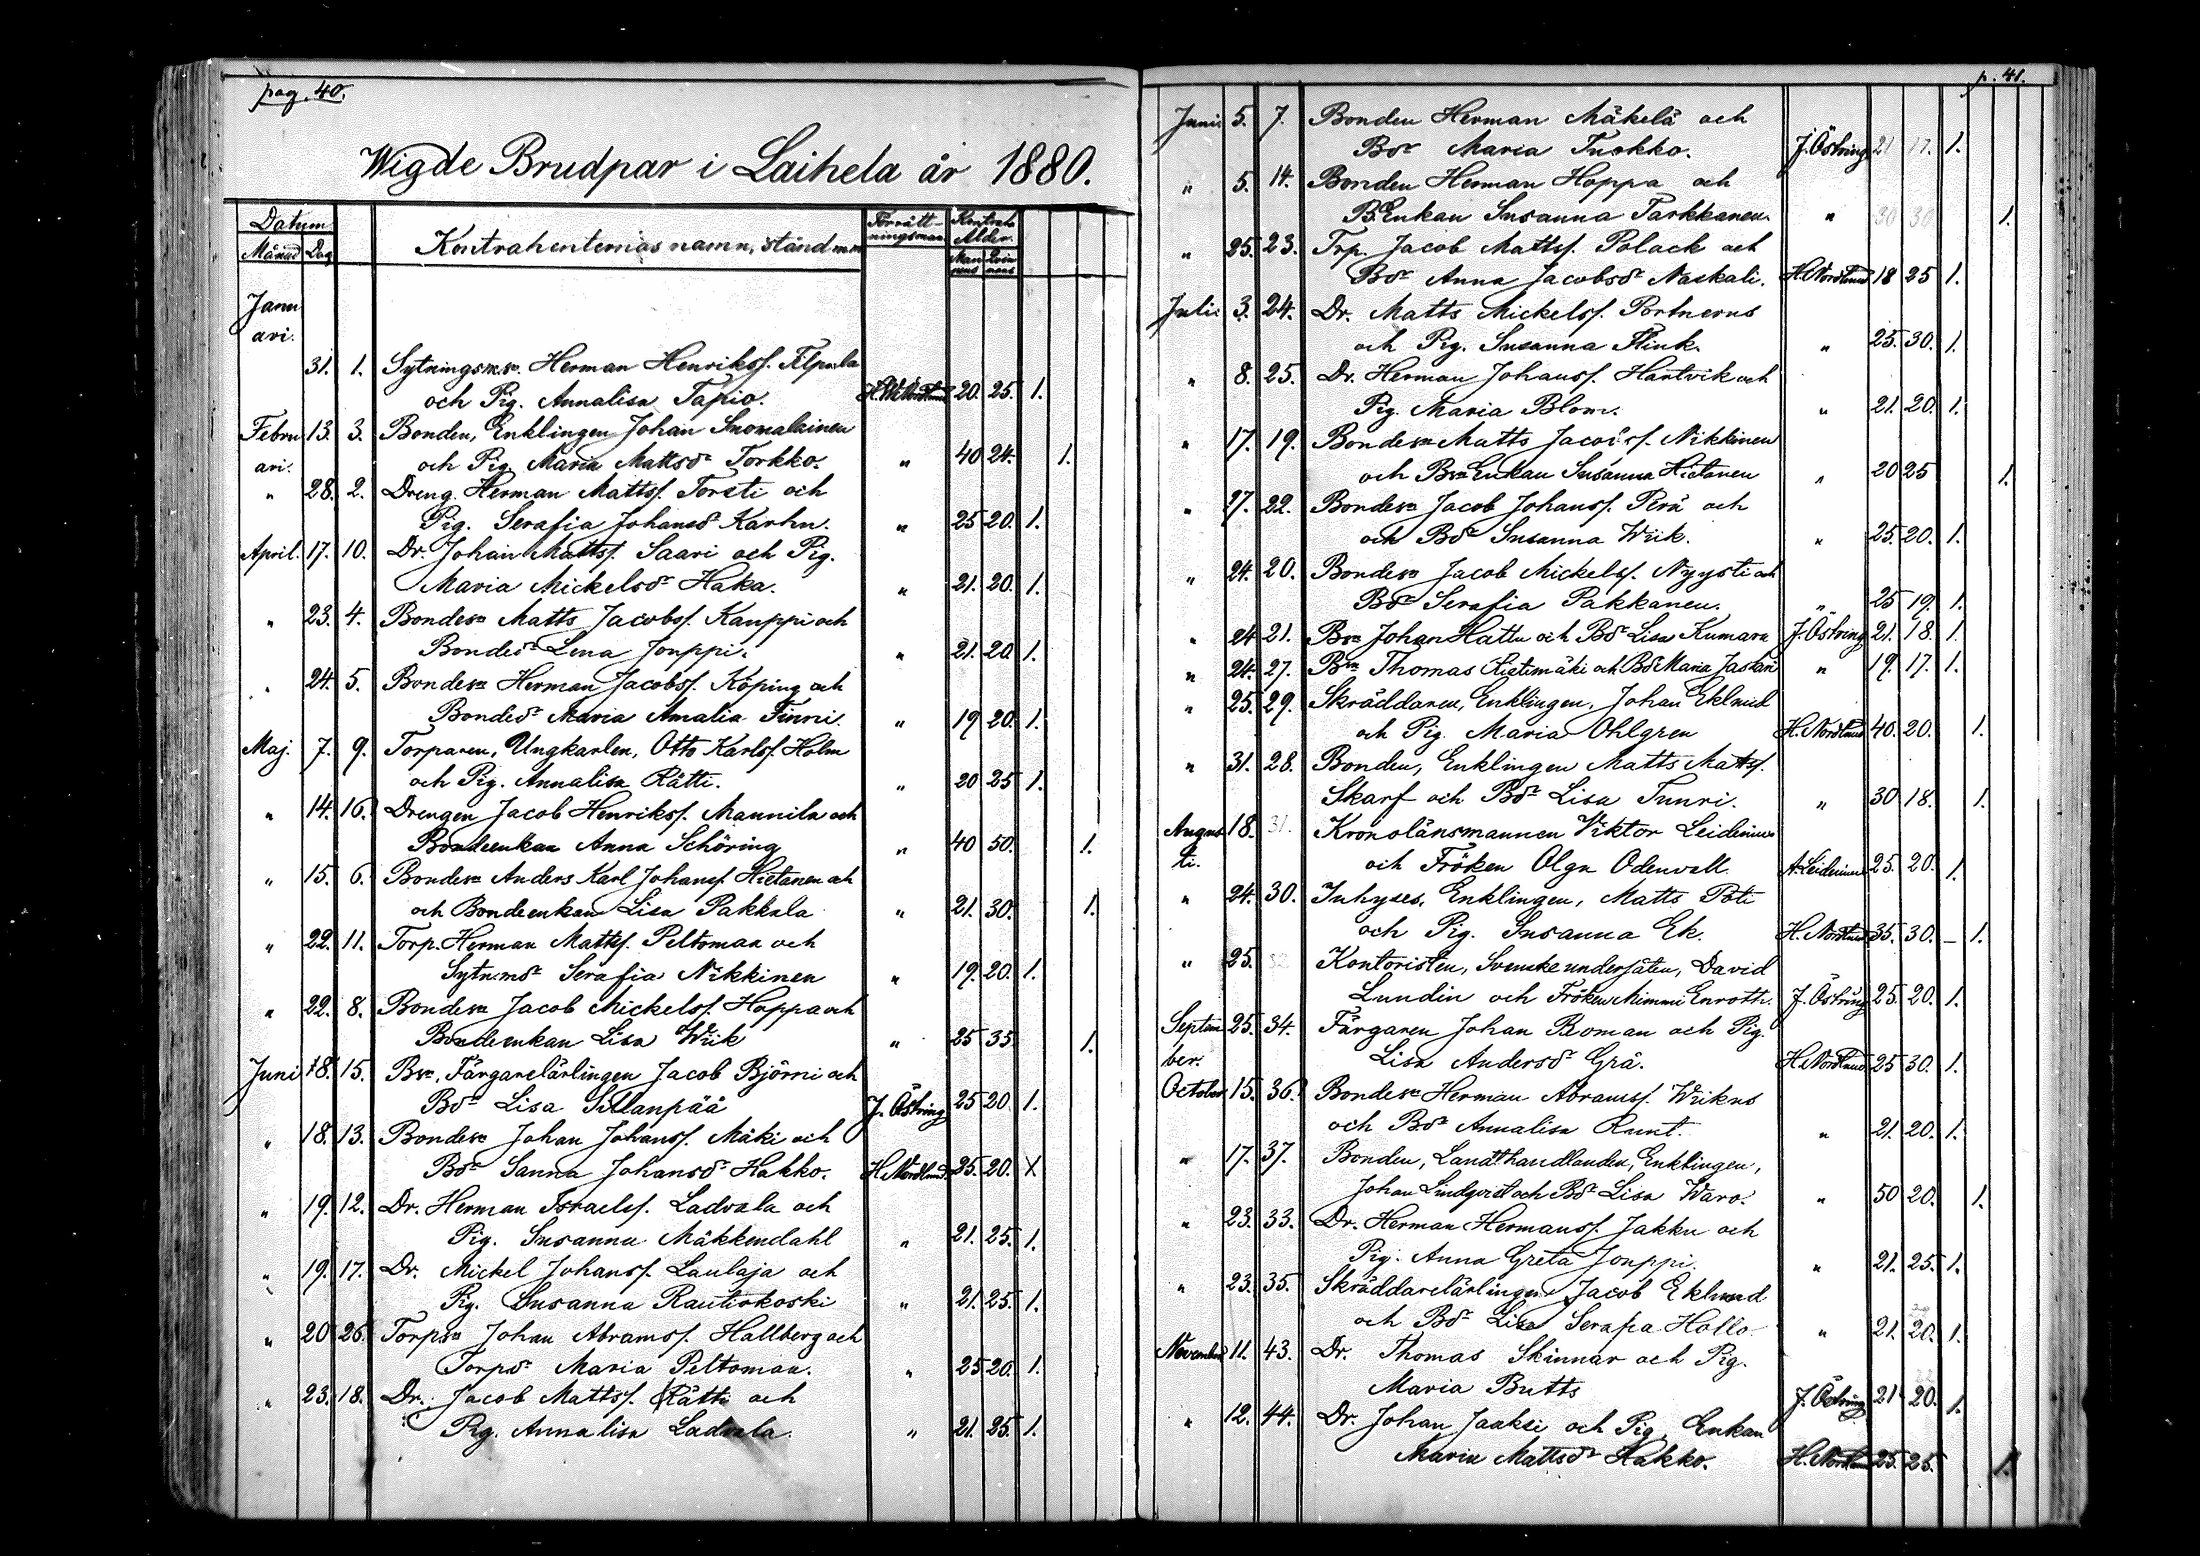 pag. 40.
Wigde Brudpar i Laihela år 1880.
Datum
Månad Dag
Kontrahenternas namn, stånd m.m.
Förrätt-
ningsman
Kontrah.
Ålder.
Man
nens
Qvin
nans
Janu
ari.
31. 1. Sytningsm.sn Herman Henrikss. Filppula
och Pig. Annalisa Tapio. H. W. Nordlund 20. 25. 1.
Febru 13. 3. Bonden, Enklingen Johan Suomalainen
ari. och Pig. Maria Mattsdr Torkko. " 40 24. 1.
" 28. 2. Dreng. Herman Mattss. Torsti och
Pig. Serafia Johansdr Karhu. " 25 20. 1.
April. 17. 10. Dr. Johan Mattss. Saari och Pig.
Maria Mickelsdr Haka. " 21. 20. 1.
" 23. 4. Bondesn Matts Jacobss. Kauppi och
Bondedr Lena Jouppi. " 21. 20. 1.
" 24. 5. Bondesn Herman Jacobss. Köping och
Bondedr Maria Amalia Finni. " 19 20. 1.
Maj. 7. 9. Torparen, Ungkarlen, Otto Karlss. Holm
och Pig. Annalisa Rätti. " 20 25 1.
" 14. 16. Drengen Jacob Henrikss. Mannila och
Bondeenkan Anna Schöring " 40 50. 1.
" 15. 6. Bondesn Anders Karl Johanss. Hietanen och
och Bondeenkan Lisa Pakkala " 21. 30. 1.
" 22. 11. Torp. Herman Mattss. Peltomaa och
Sytn.mdr Serafia Nikkinen " 19. 20. 1.
" 22. 8. Bondesn Jacob Mickelss. Hoppa och
Bondeenkan Lisa Wiik " 25 35. 1.
Juni 18. 15. Bsn, Färgarelärlingen Jacob Björni och
Bdr Lisa Sillanpää J. Östring 25 20. 1.
" 18. 13. Bondesn Johan Johanss. Mäki och
Bdr Sanna Johansdr Hakko. H. Nordlund 25. 20. 1.
" 19. 12. Dr. Herman Israelss. Ladvala och
Pig. Susanna Mäkkendahl " 21. 25. 1.
" 19. 17. Dr. Mickel Johanss. Laulaja och
Pig. Susanna Rautiokoski " 21. 25. 1.
" 20 26. Torpsn Johan Abramss. Hallberg och
Torpdr Maria Peltomaa. " 25 20. 1.
" 23. 18. Dr. Jacob Mattss. Rätti och
Pig. Annalisa Ladvala. " 21. 25. 1.
p. 41.
Juni 5. 7. Bonden Herman Mäkelä och
Bdr Maria Tuokko. J. Östring 21 17. 1.
" 5. 14. Bonden Herman Hoppa och
B.Enkan Susanna Tarkkanen. " 30 30 1.
" 25. 23. Trp. Jacob Mattss. Polack och
Bdr Anna Jacobsdr Naskali. H. Nordlund 18 25 1.
Juli 3. 24. Dr. Matts Mickelss. Portnerus
och Pig. Susanna Flink. " 25. 30. 1.
" 8. 25. Dr. Herman Johanss. Hartvik och
Pig. Maria Blom. " 21. 20. 1.
" 17. 19. Bondesn Matts Jacobss. Nikkinen
och BsnEnkan Susanna Hietanen " 20 25 1.
" 17. 22. Bondesn Jacob Johanss. Perä och
och Bdr Susanna Wiik. " 25. 20. 1.
" 24. 20. Bondesn Jacob Mickelss. Nyysti och
Bdr Serafia Pakkanen. " 25 19. 1.
" 24 21. Bsn Johan Hattu och Bdr Lisa Kumara J. Östring 21. 18. 1.
" 24. 27. Bsn Thomas Lietemäki och Bdr Maria Jaskari " 19. 17. 1.
" 25. 29. Skräddaren, Enklingen, Johan Eklund
och Pig. Maria Ohlgren H. Nordlund 40. 20. 1.
" 31. 28. Bonden, Enklingen Matts Mattss.
Skarf och Bdr Lisa Tunri. " 30 18. 1.
Augus 18. 31. Kronolänsmannen Viktor Leidenius
ti. och Fröken Olga Odenvall. A. Leidenius 25. 20. 1.
" 24. 30. Inhyses, Enklingen, Matts Poti
och Pig. Susanna Ek. H. Nordlund 35. 30. – 1.
" 25. 32 Kontoristen, Svenske undersåten, David
Lundin och Fröken Mimmi Enroth. J. Östring 25. 20. 1.
Septem 25. 34. Färgaren Johan Boman och Pig.
ber. Lisa Andersdr Grä. H. Nordlund 25 30. 1.
October 15. 36. Bondesn Herman Abramss. Wiikus
och Bdr Annalisa Rant. " 21. 20. 1.
" 17. 37. Bonden, Landthandlanden, Enklingen,
Johan Lindqvist och Bdr Lisa Waro. " 50 20. 1.
" 23. 33. Dr. Herman Hermanss. Jakku och
Pig. Anna Greta Jouppi. " 21. 25. 1.
" 23. 35. Skräddarelärlingen Jacob Eklund
och Bdr Lisa Serafia Hollo. " 21. 20. 1.
November 11. 43. Dr. Thomas Skinnar och Pig.
Maria Butts J. Östring 21 20. 1.
" 12. 44. Dr. Johan Jaakse och Pig. Enkan
Maria Mattsdr Hakko. H. Nordlund 25. 25. 1.